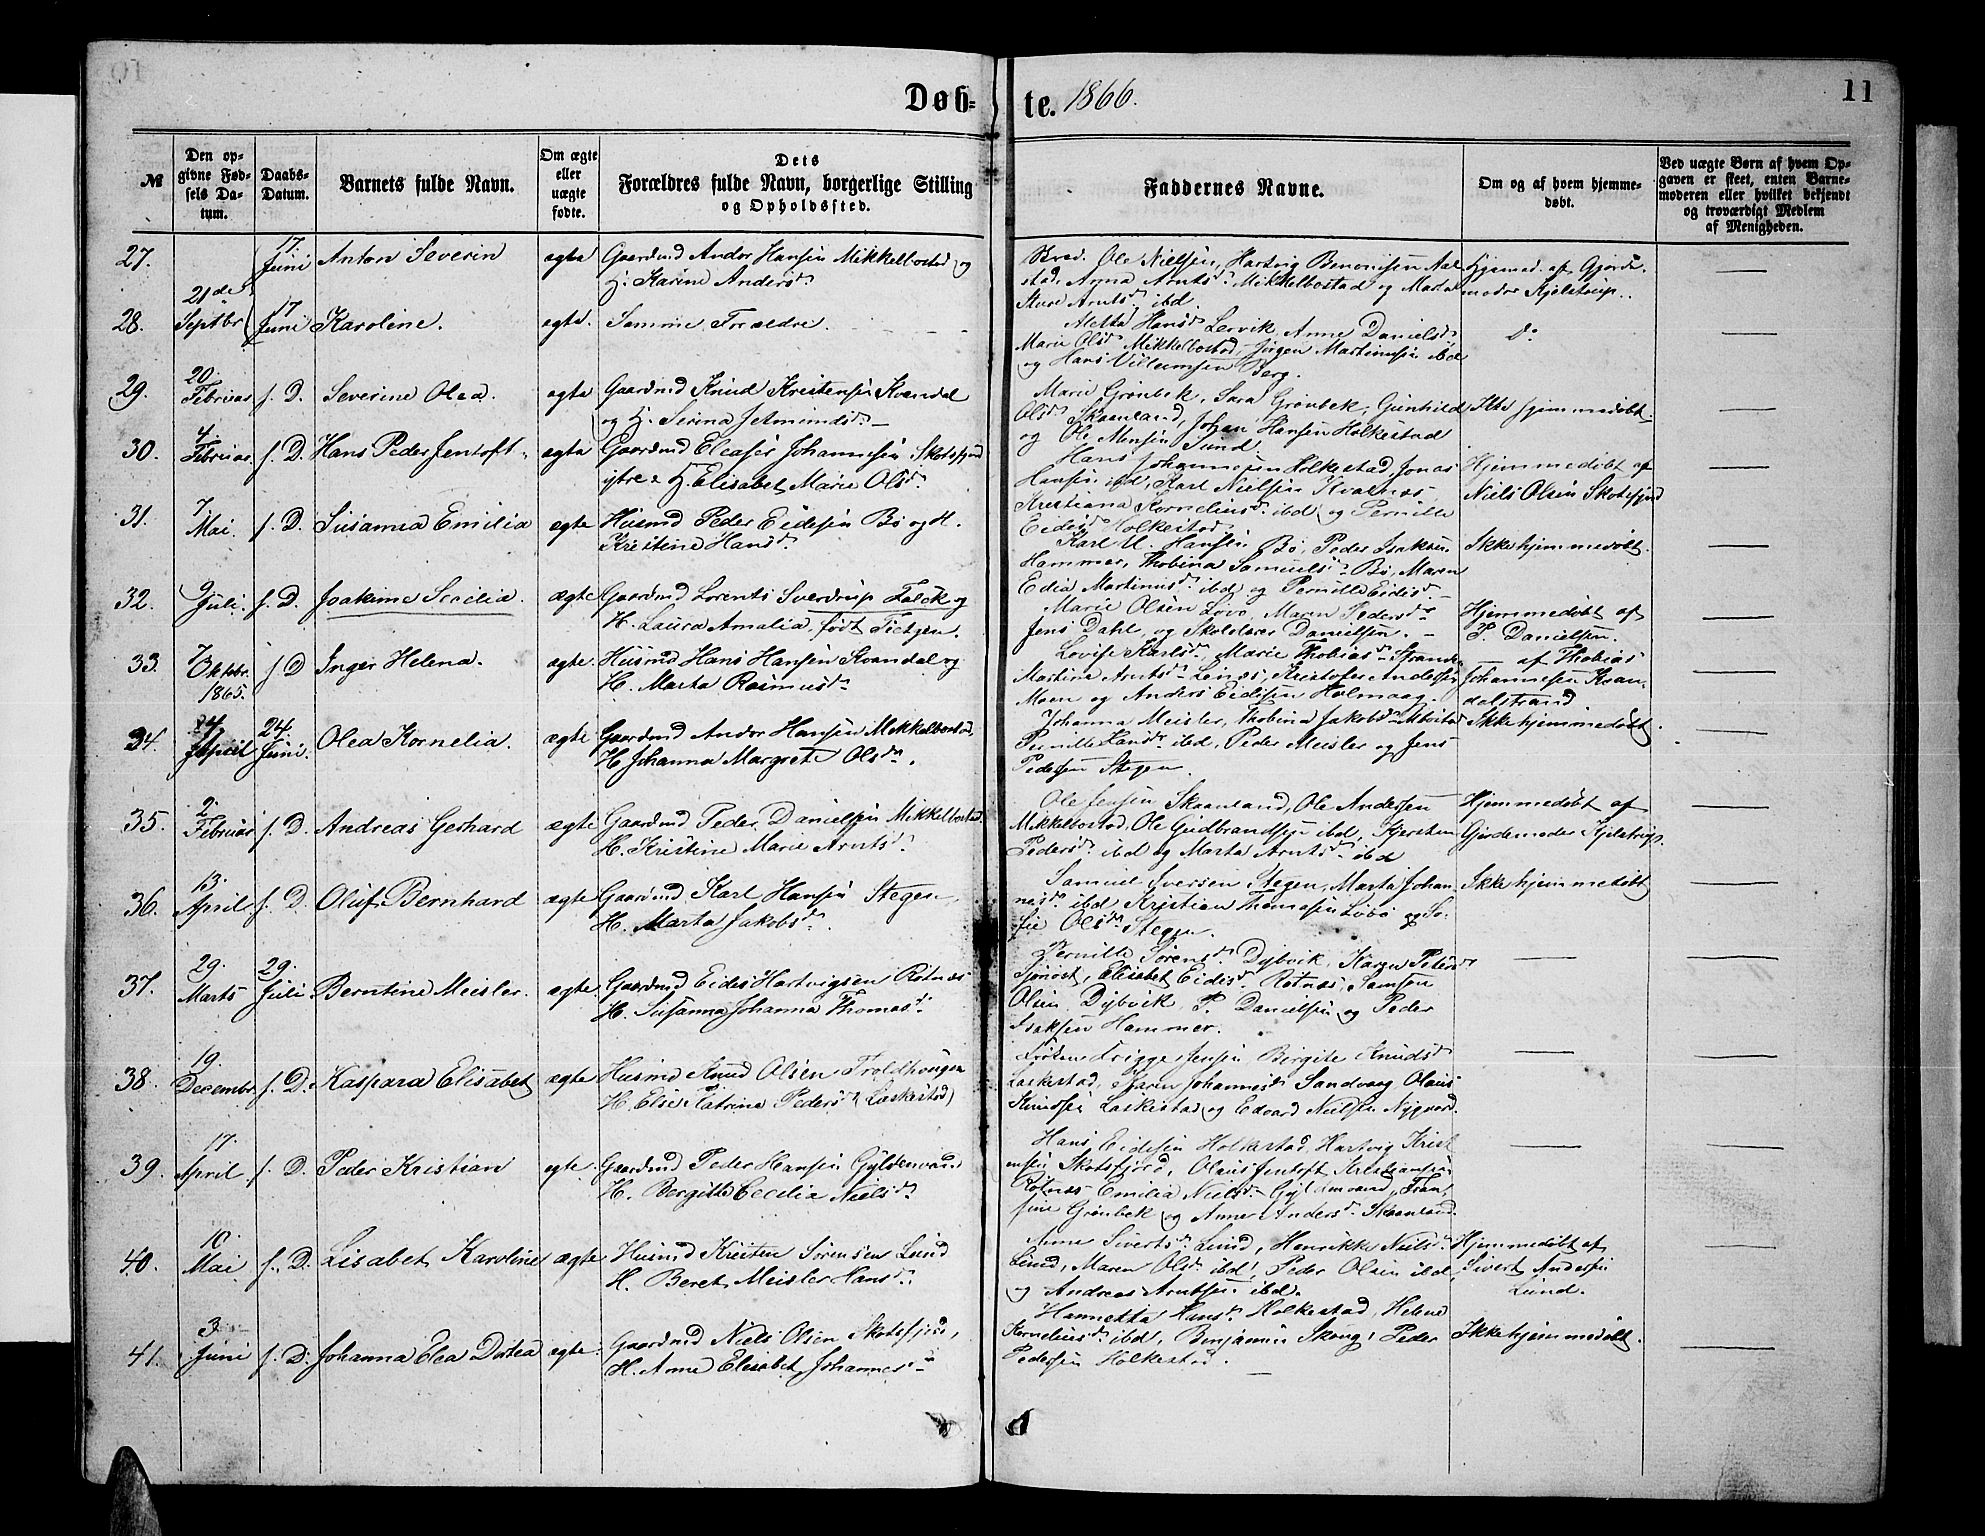 Døb-
te. 1866.
11
№
Den op-
givne Fød-
sels Da-
tum.
Daabs-
Datum.
Barnets fulde Navn.
Om ægte
eller
uægte
fødte.
Dets
Forældres fulde Navn, borgerlige Stilling
og Opholdssted.
Faddernes Navne.
Om og af hvem hjemme-
døbt.
Ved uægte Børn af hvem Op-
gaven er skeet, enten Barne-
moderen eller hvilket bekjendt
og troværdigt Medlem
af Menigheden.
27.
17.
Juni
Anton Severin
ægte
Gaardmd Andor Hansen Mikkelbostad og
H. Karine Andersd.
Ole Nielsen, Hartvig Benonisen
Anna Arntsd. Mikkelbostad og Marta
Arntsd. ibd
Hjemmed. af Gjorde-
moder Kjelstrup.
28.
21de
Septbr
17
Juni
Karoline.
ægte.
Samme Forældre.
Aletta Hansd. Lervik, Anne Danielsd.
Marie Olsd. Mikkelbostad, Jørgen Martinusen ibd
og Hans Villumsen Berg.
do
29.
20.
Februar
s. D.
Severine Olea.
ægte
Gaardmd Knud Kristensen Kvandal
og H. Serina Jetmundsd.
Marie Grønbek, Sara Grønbek, Gunhild
Olsd. Skaanland, Johan Hansen Holkestad
og Ole Monsen Sund.
Ikke hjemmedøbt.
30.
4.
Februar
s. D.
Hans Peder Jentoft
ægte
Gaardmd Eleaser Johannesen Skotsfjord
ytre & H. Elisabet Marie Olsd.
Hans Johannesen Holkestad, Jonas
Hansen ibd, Karl Nielsen Kvalnes
Kristiana Korneliusd. ibd og Pernille
Eidisd. Holkestad.
Hjemmedøbt af
Niels Olsen Skotsfjord
31.
7.
Mai.
s. D.
Susanna Emilia
ægte
Husmd Peder Eidesen Bø og H.
Kristine Hansd.
Karl U. Hansen Bø, Peder Isaksen
Hammer, Thobina Samuelsd. Bø, Maren
Edia Martinusd. ibd og Pernille Eidisd.
Ikke hjemmedøbt.
32.
9
Juli.
s. D.
Joakime Secilia.
ægte
Gaardmd Lorents Sverdrup Falck og
H. Laura Amalia, født Tietgen.
Marie Olsen Løvø, Maren Pedersd.
Jens Dahl, og Skolelærer Danielsen.
Hjemmedøbt af
P. Danielsen.
33.
7
Oktobr.
1865.
s. D
Inger Helena.
ægte
Husmd Hans Hansen Kvandal og
H. Marta Rasmusd.
Lovise Karlsd., Marie Thobiasd.
Martina Arntsd. Leines, Kristofer Andersen
Moen og Anders Eidisen Holmaag.
af Thobias
Johannesen Kvan-
dalstrand.
34.
24
April
24.
Juni.
Olea Kornelia.
ægte
Gaardmd Andor Hansen Mikkelbostad,
H Johanna Margrete Olsd.
Johanna Meisler, Thobina Jakobsd.
Pernille Hansd. ibd, Peder Meisler og Jens
Pedersen Stegen.
Ikke hjemmedøbt.
35.
2.
Februar
s. D.
Andreas Gerhard
ægte
Gaardmd Peder Danielsen Mikkelbostad.
H. Kristine Marie Arntsd.
Ole Jensen Skaanland, Ole Andersen
Mikkelbostad, Ole Gudbrandsen ibd, Kjersten
Pedersd. ibd og Marta Arntsd. ibd
Hjemmedøbt af
Gjordemoder Kjelstrup.
36.
13.
April
s. D.
Oluf Bernhard
ægte
Gaardmd Karl Hansen Stegen,
H. Marta Jakobsd.
Samuel Iversen Stegen, Marta Johan-
nesd. ibd Kristian Thomesen Løbø og So-
fie Olsd. Stegen.
Ikke hjemmedøbt
37.
29.
Marts
29.
Juli
Berntine Meisler.
ægte.
Gaardmd Eides Hartvigsen Røtnæs
H. Susanna Johanna Thomasd.
Pernille Sørensd. Dybvik, Karen Petersd.
Elisabet Eidisd. Røtnæs, Samson
Olsen Dybvik, P. Danielsen og Peder
Isaksen Hammer.
38.
19.
Decembr.
s. D.
Kaspara Elisabet
ægte
Husmd Knud Olsen Troldhougen
H. Else Katrina Pedersd. (Laskestad)
Trigge Jensen, Birgite Knudsd.
Laskestad, Karen Johannesd. Sandvaag, Olaus
Knudsen Laskestad og Edvard Nielsen Nygaard.
39.
17.
April
s. D.
Peder Kristian
ægte
Gaardmd Peder Hansen Gyldenvand
H. Bergitte Cecilia Nielsd.
Hans Eidesen Holkestad, Hartvig Krist
ensen Skotsfjord, Olaus Jentoft Kristiansen
Røtnæs, Emilia Nielsd. Gyldenvand, Fran-
sine Grønbek og Anne Andersd. Skaanland.
40.
10.
Mai
s. D.
Lisabet Karoline
ægte
Husmd Kristen Sørensen Lund
H. Beret Meisler Hansd.
Anne Sivertsd. Lund, Henrikke Nielsd.
Lund, Maren Olsd. ibd, Peder Olsen ibd,
og Andreas Arntsen ibd.
Hjemmedøbt af
Sivert Andersen
Lund.
41.
3.
Juni
s. D.
Johanna Elea Dortea
ægte.
Gaardmd Niels Olsen Skotsfjord,
H. Anne Elisabet Johannesd.
Hannetta Hansd. Holkestad, Helene
Korneliusd. ibd, Benjamin Skoug, Peder
Pedersen Holkestad.
Ikke hjemmedøbt.